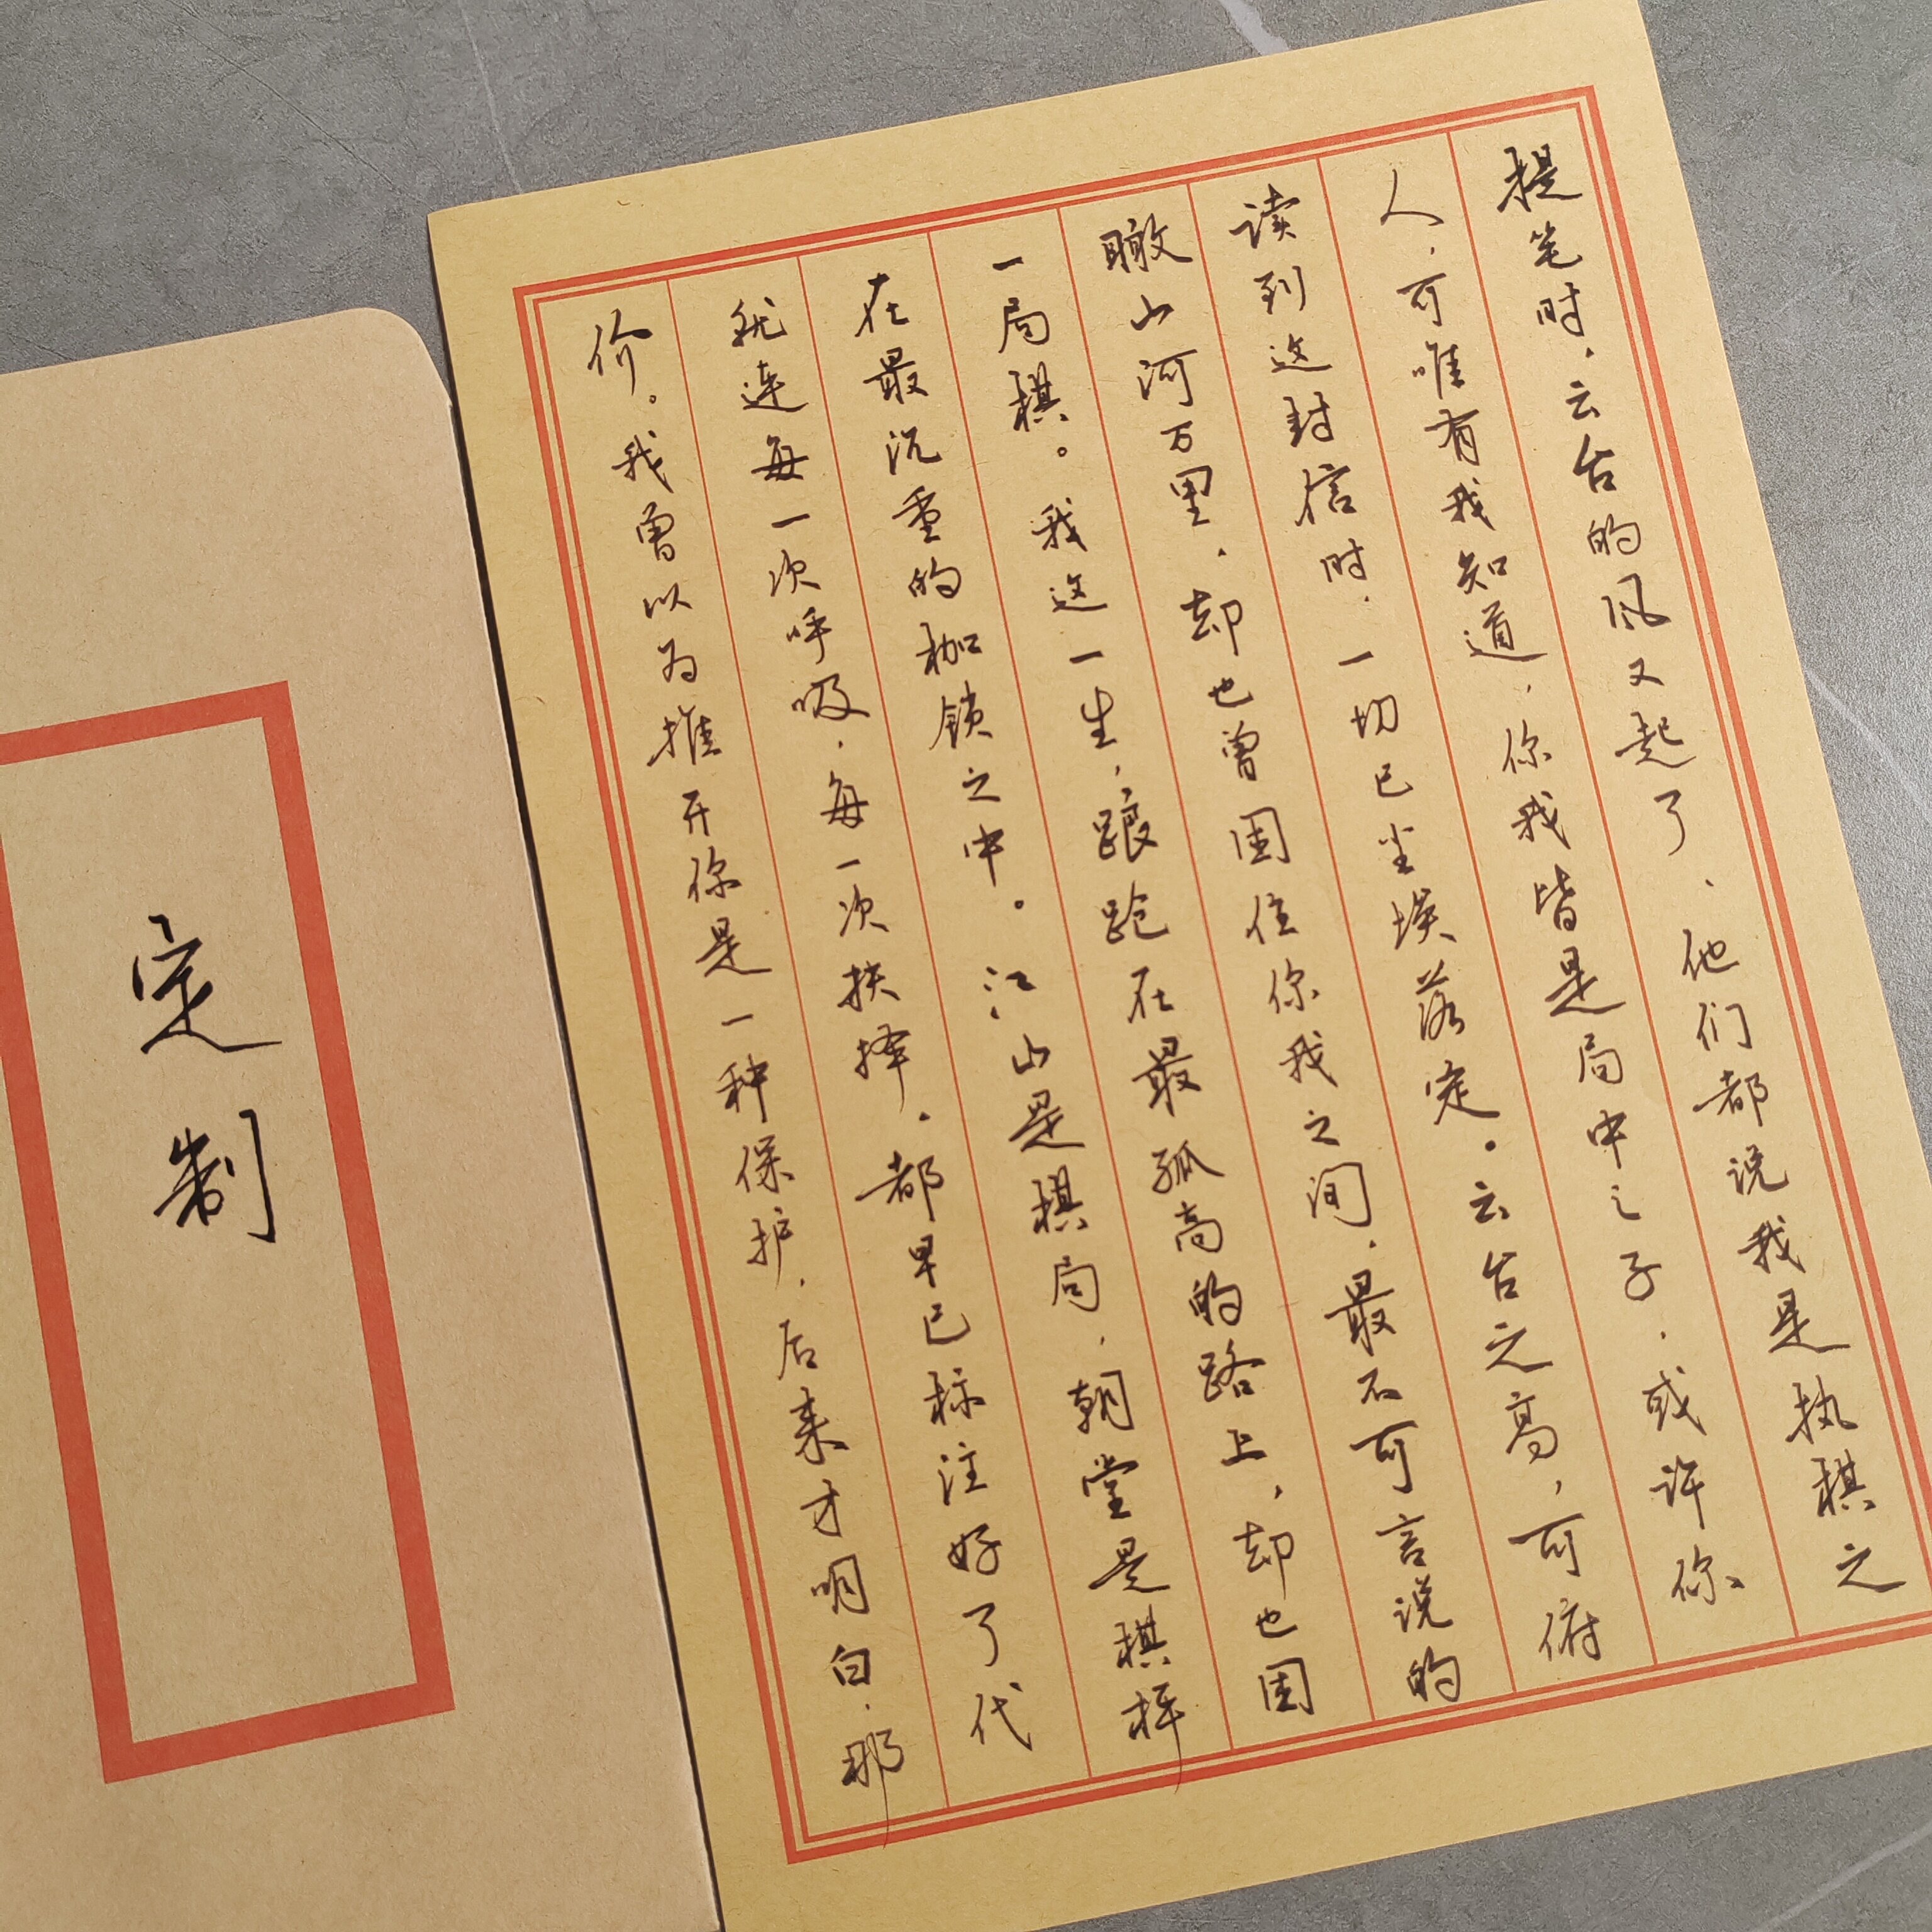 提笔时，云台的风又起了、他们都说我是执棋之
人，可唯有我知道，你我皆是局中之子，或许你
读到这封信时，一切已尘埃落定。云台之高，可俯
瞰山河万里，却也曾困住你我之间，最不可言说的
一局棋。我这一生，踉跄在最孤高的路上，却也困
在最沉重的枷锁之中。江山是棋局，朝堂是棋枰
就连每一次呼吸，每一次抉择，都早已标注好了代
价。我曾以为推开你是一种保护，后来才明白，那
定制